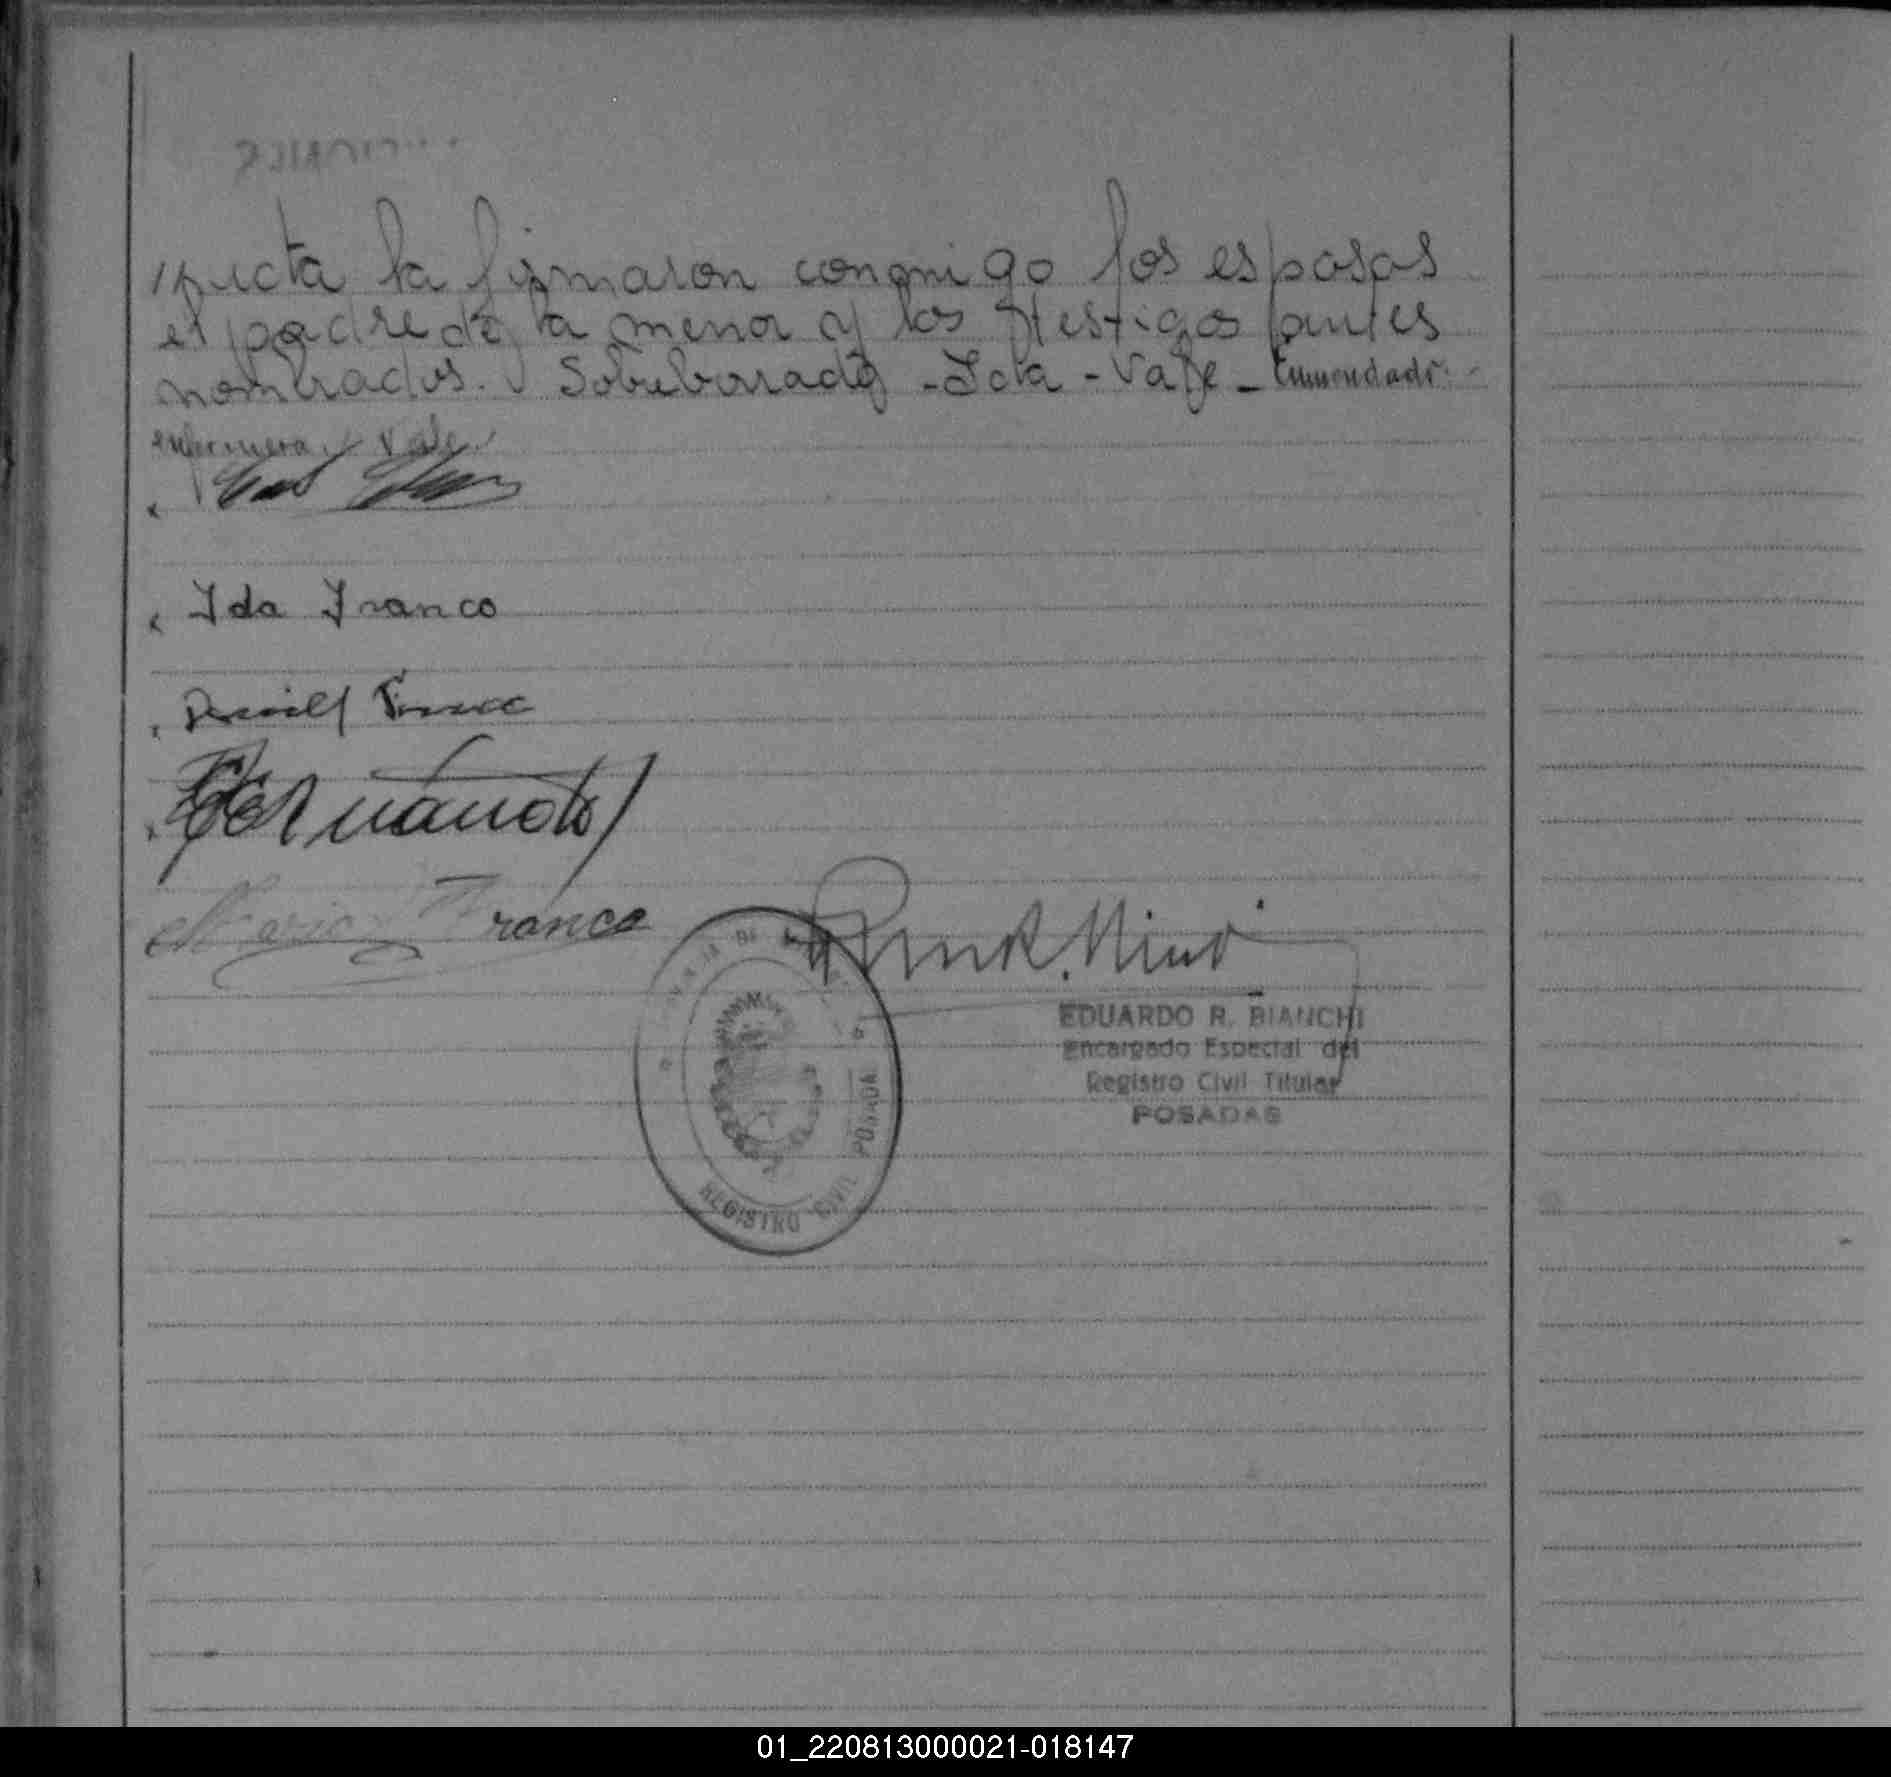 acta la firmaron conmigo los esposos
el padre de la menor y los testigos antes
nombrados. Sobreborrado - Ida - Vale - Enmendado
enfermera. Vale.
Ida Franco
Franco
Hernando
Maria Franco
EDUARDO R. BIANCHI
Encargado Especial del
Registro Civil Titular
POSADAS
REGISTRO CIVIL POSADAS
01_220813000021-018147